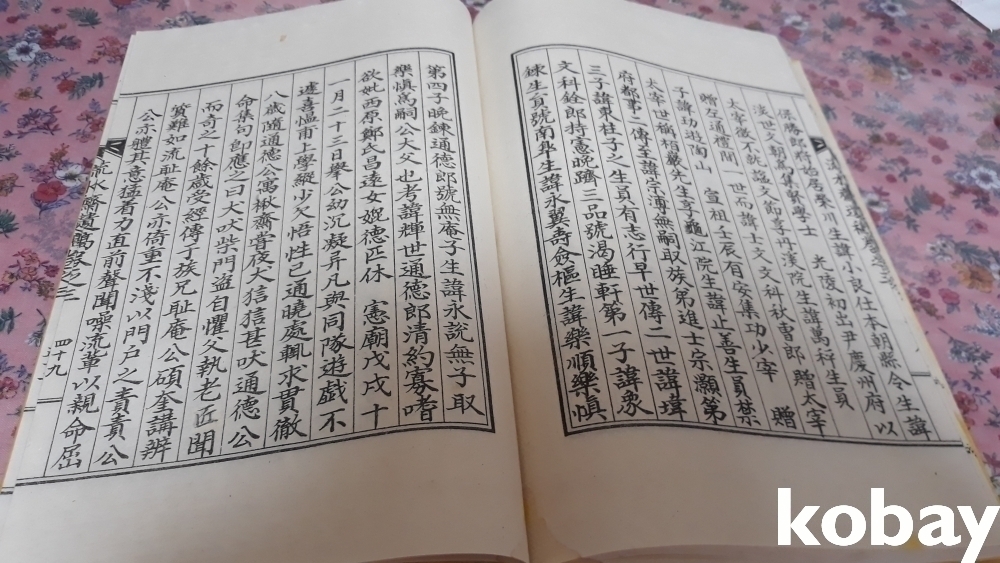 保勝郎將始居榮川生諱小良仕本朝縣令生諱
文朝集賢學士 光陵初出尹慶州府以
太宰徵不就諡文節享丹溪院生諱萬秤生員
贈左通禮閒一世而諱士文文科秋曹郎 贈太宰
子諱功遊陶山 宣祖壬辰有安集功少宰 贈
太宰世稱栢巖先生享龜江院生諱止善生員禁
府都事二傳至諱宗 無嗣取族弟進士宗灝第
三子諱東柱子之生員有志行早世傳二世諱瑋
文科銓郎持憲晩躋三品號渴睡軒第一子諱彖
鍊生員號南臯生諱永翼壽僉樞生諱樂順樂愼
第四子晩鍊通德郎號無庵子生諱永說無子取
樂愼爲嗣公大父也考諱輝世通德郎清約寡嗜
欲妣西原鄭氏昌遠女媲德匹休 憲廟戊戌十
一月二十三日擧公幼沉凝异凡與同隊遊戱不
遽喜慍甫上學縱少欠悟性已通曉處輒求貫徹
八歲隨通德公寓楸齋甞夜犬狺狺甚吠通德公
命集句卽應之曰犬吠柴門盜自懼父執老匠聞
而奇之十餘歲受經傳于族兄耻庵公碩奎講辨
質難如流耻庵公亦倚重不淺以門戶之責責公
公亦體其意猛着力直前聲聞噪流輩以親命屈
流水齋遺稿卷之三 四十九
kobay